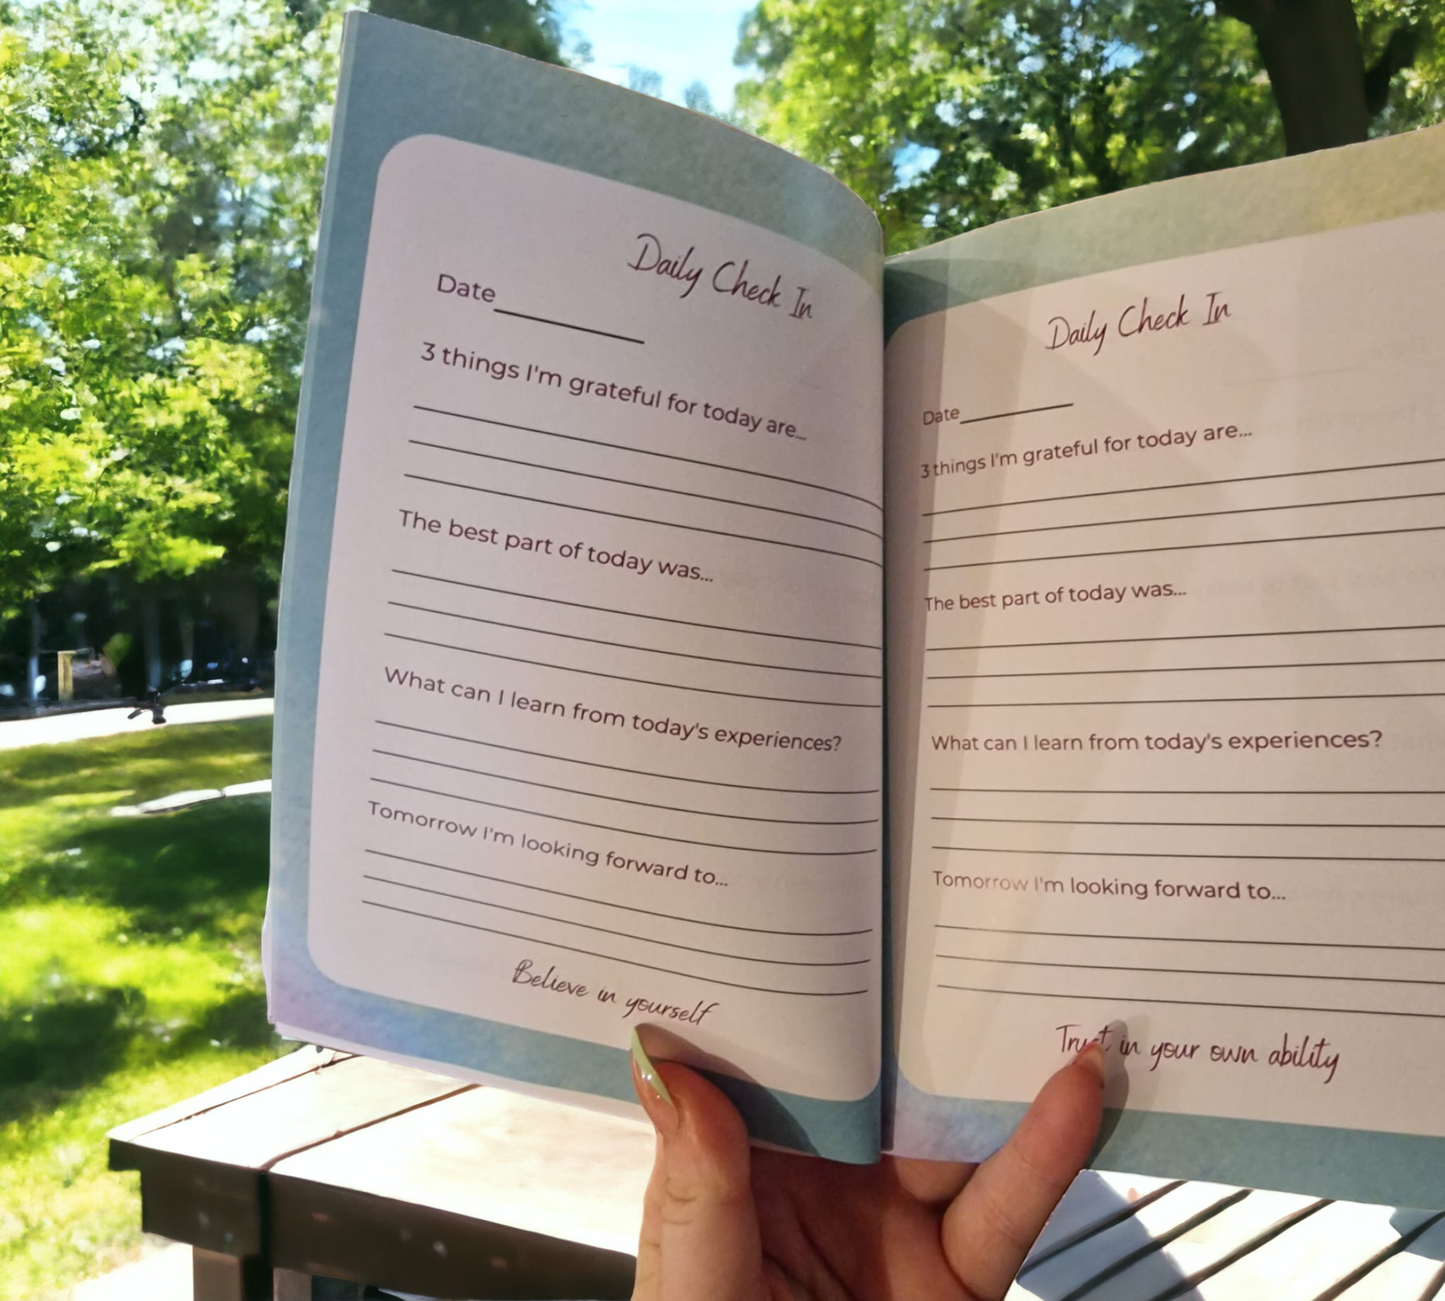 Daily Check In
Date
3 things I'm grateful for today are...
The best part of today was...
What can I learn from today's experiences?
Tomorrow I'm looking forward to...
Believe in yourself
Daily Check In
Date
3 things I'm grateful for today are...
The best part of today was...
What can I learn from today's experiences?
Tomorrow I'm looking forward to...
Trust in your own ability